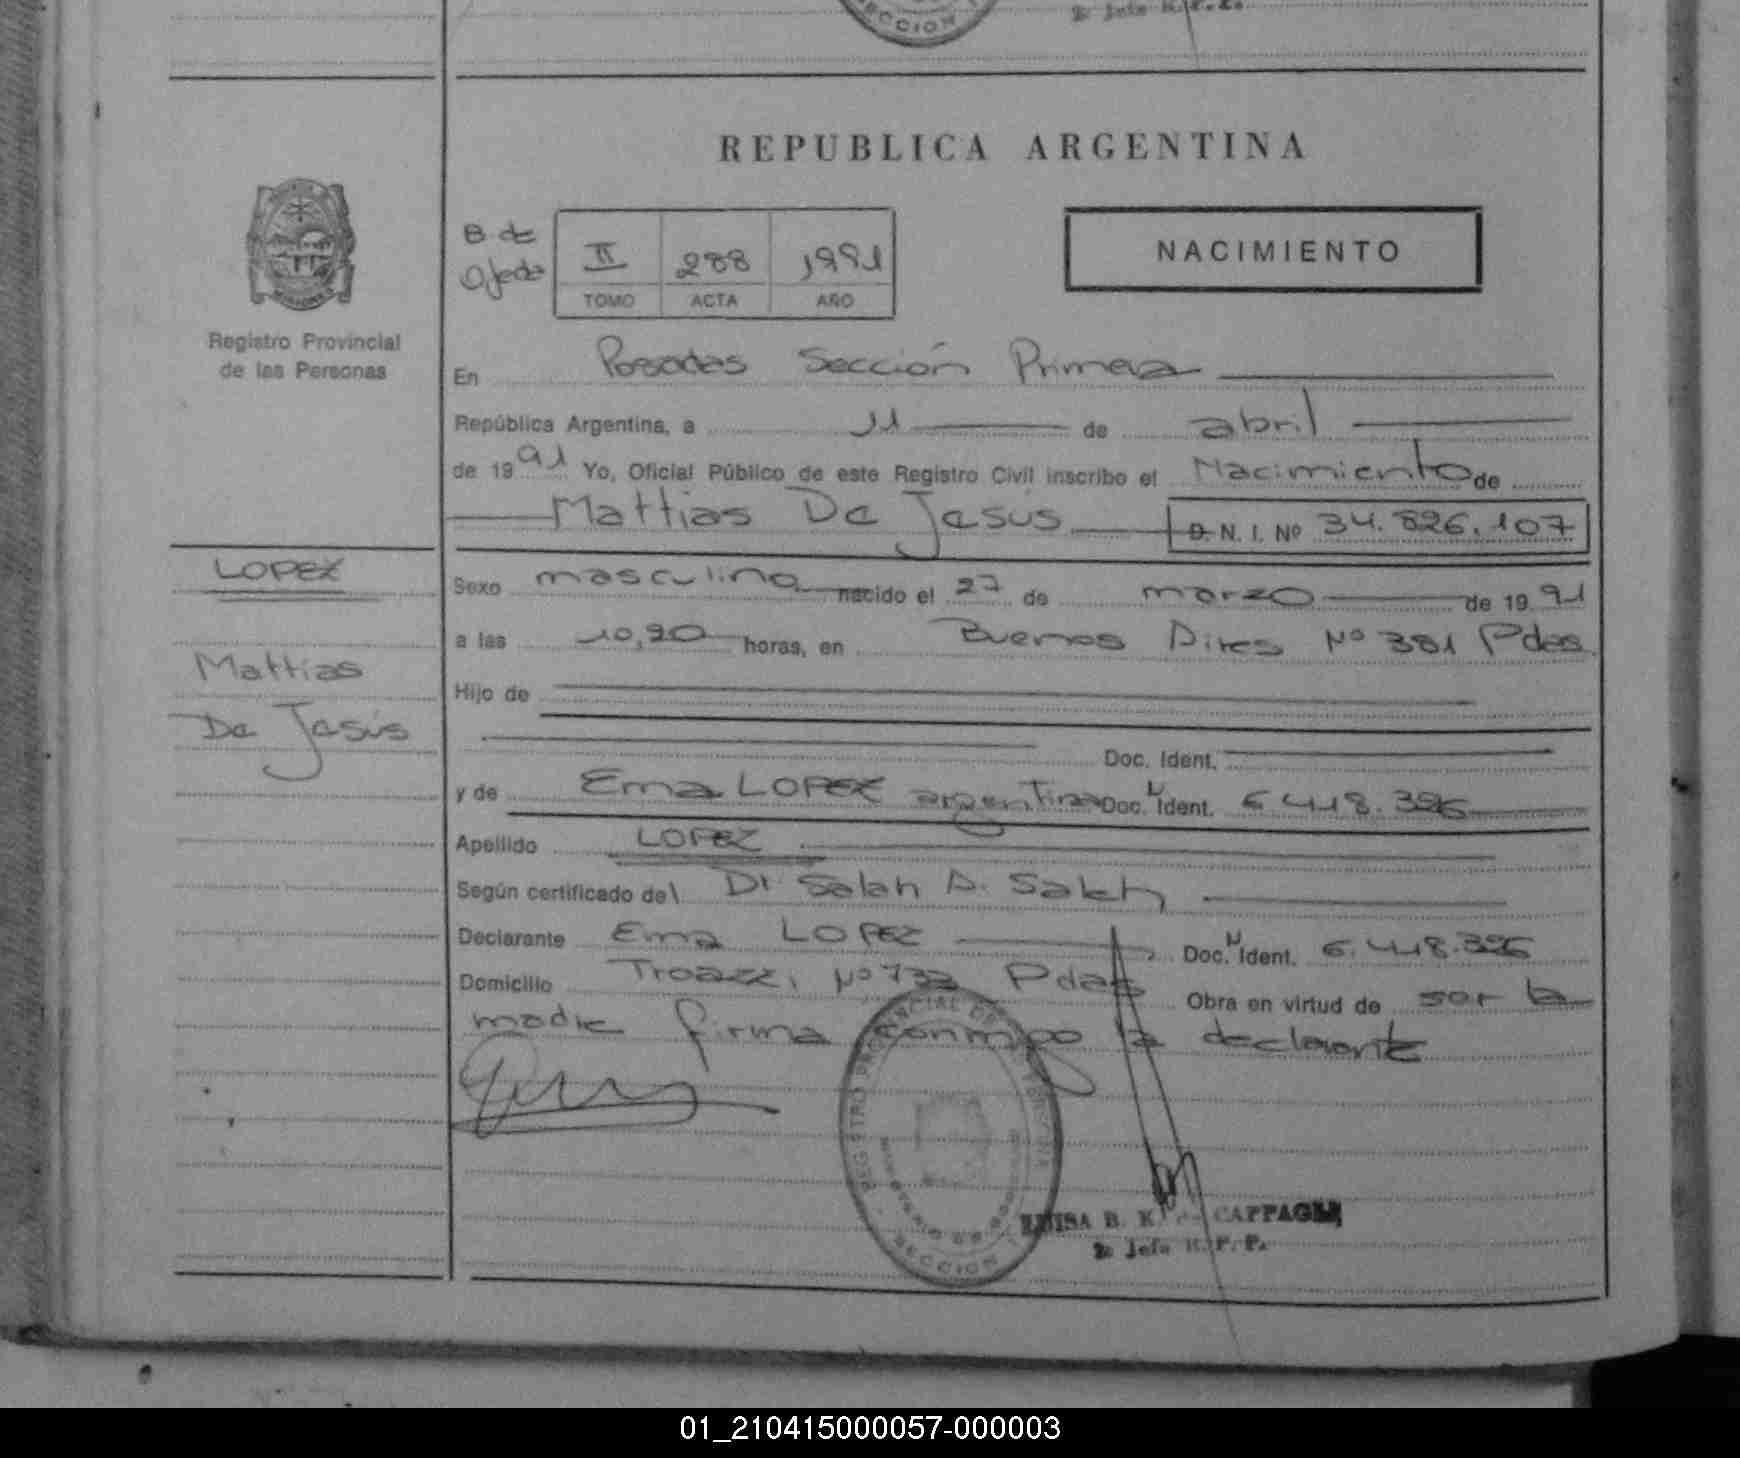 SECCION
2º Jefe R.P.P.
REPUBLICA ARGENTINA
B. de
Ojeda
II 288 1991
TOMO ACTA AÑO
NACIMIENTO
Registro Provincial
de las Personas
En Posadas Sección Primera
República Argentina, a 11 de abril
de 1991 Yo, Oficial Público de este Registro Civil inscribo el Nacimiento de
Mattias De Jesús D. N. I. Nº 34.826.107
LOPEZ
Mattias
De Jesús
Sexo masculino nacido el 27 de marzo de 1991
a las 10,20 horas, en Buenos Aires Nº 381 Pdas.
Hijo de
Doc. Ident.
y de Ema LOPEZ argentina Doc. Ident. 6.418.396
Apellido LOPEZ
Según certificado del Dr Salah A. Saleh
Declarante Ema LOPEZ Doc. Ident. 6.418.396
Domicilio Nº 732 Pdas Obra en virtud de ser la
madre firma conmigo la declarante
REGISTRO PROVINCIAL DE LAS PERSONAS
SECCION
LUISA B. K. de CAPPAGLI
2º Jefe R. P. P.
01_210415000057-000003